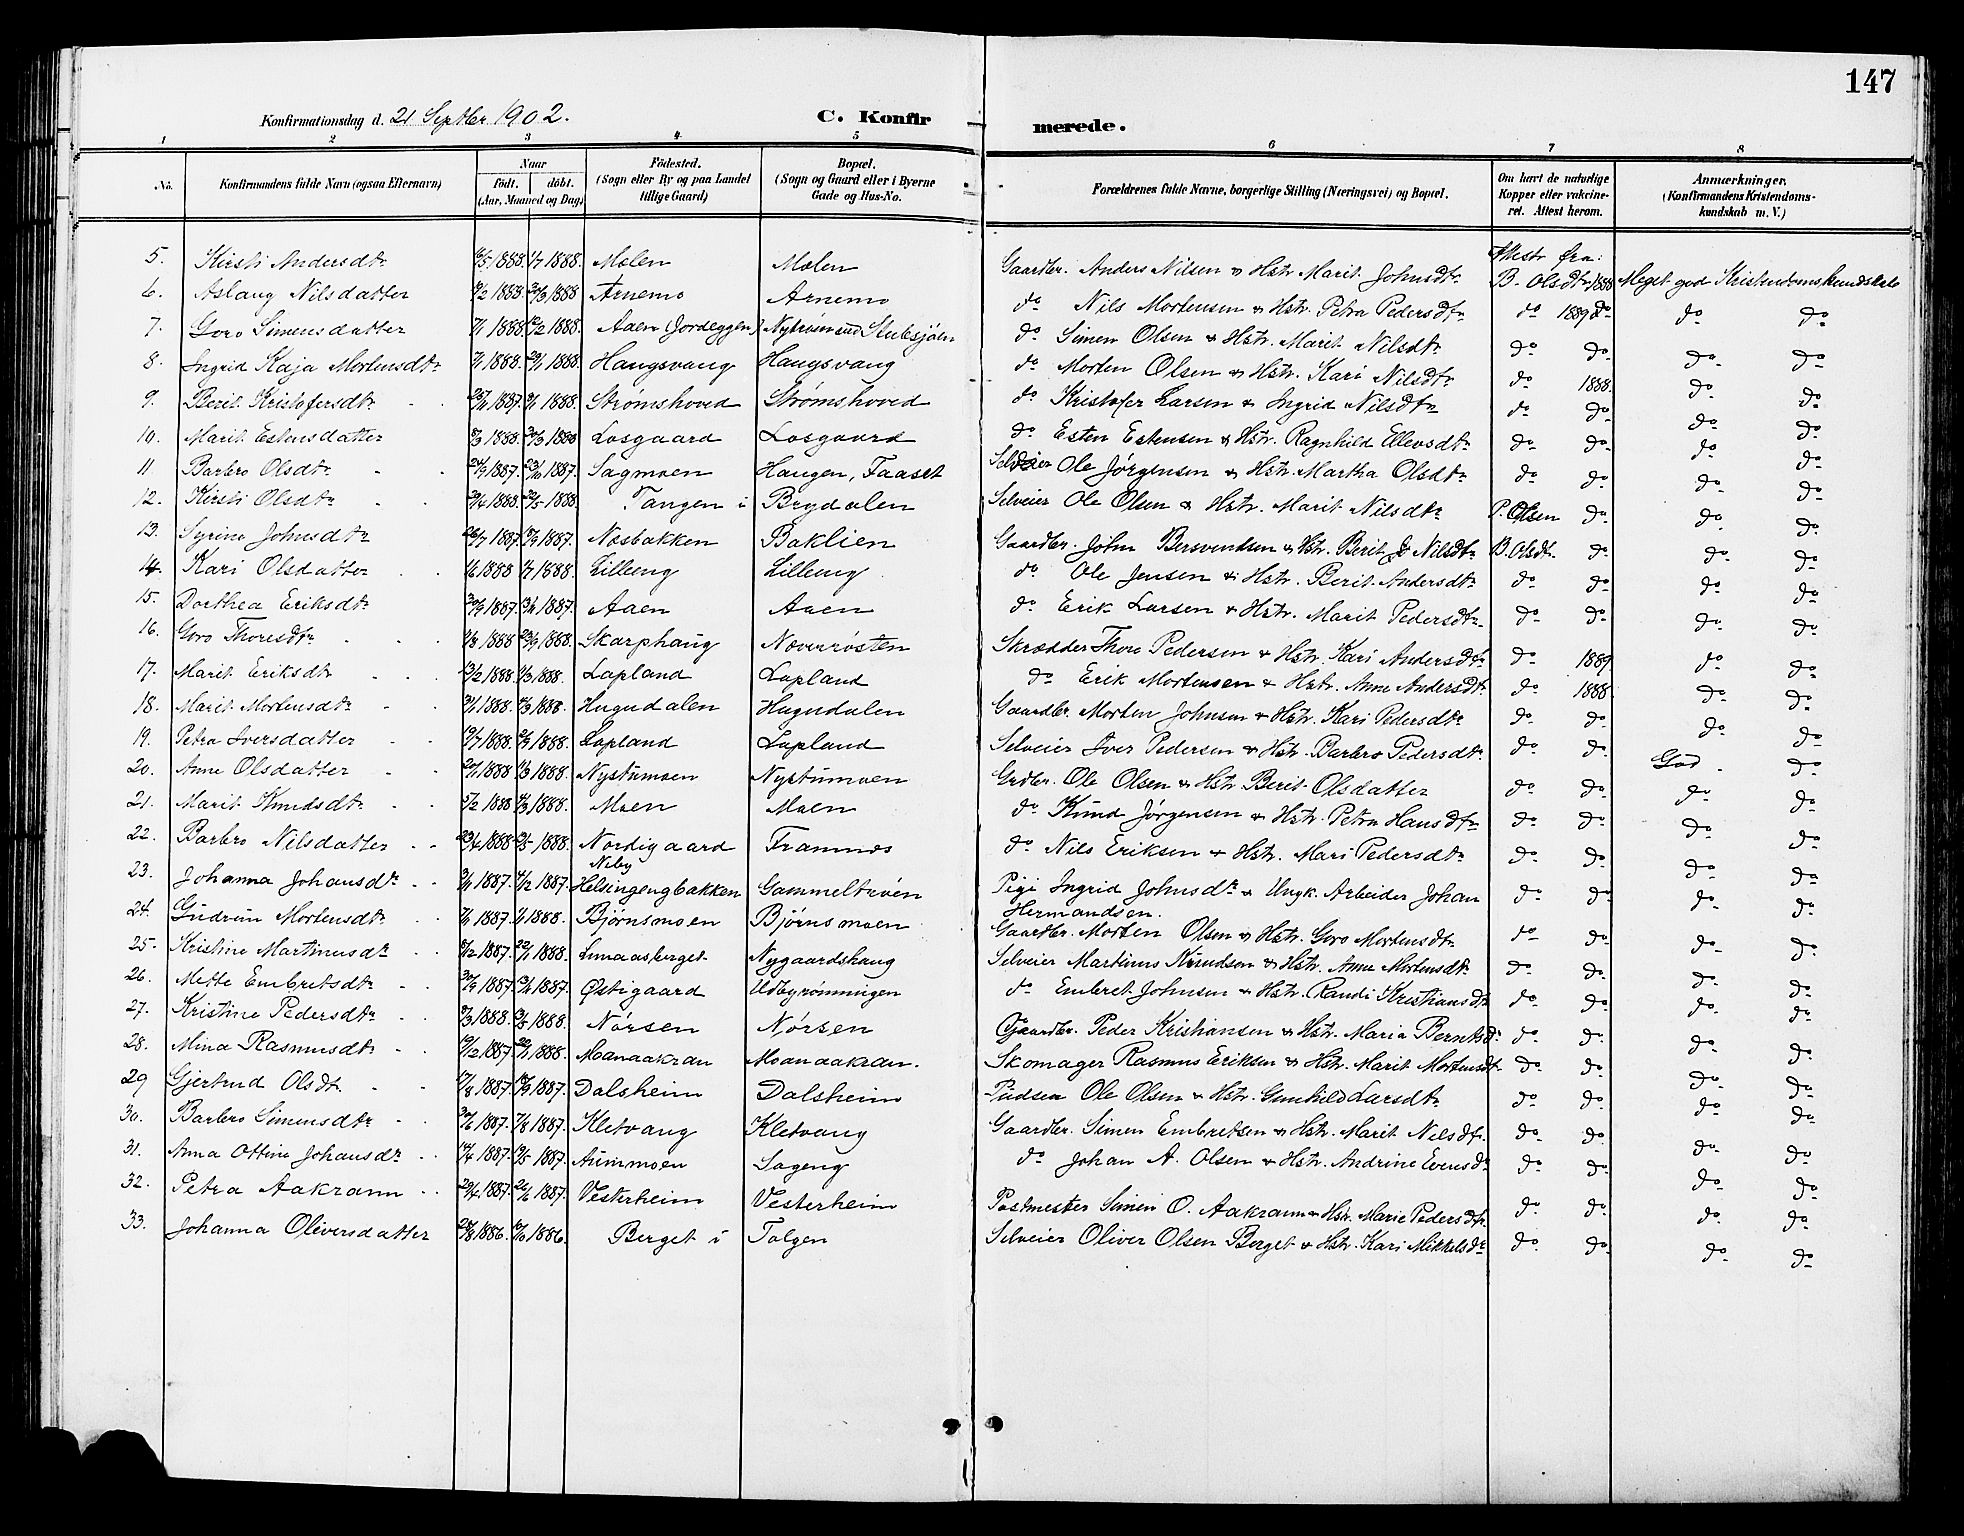 147
Konfirmationsdag d. 21 Septbr 1902.
C. Konfirmerede.
1 2 3 4 5 6 7 8
No. Konfirmandens fulde Navn (ogsaa Efternavn) Naar födt. döbt. (Aar, Maaned og Dag) Födested. (Sogn eller By og paa Landet tillige Gaard) Bopæl. (Sogn og Gaard eller i Byerne Gade og Hus-No. Forældrenes fulde Navne, borgerlige Stilling (Næringsvei) og Bopæl. Om havt de naturlige Kopper eller vakcineret. Attest herom. Anmærkninger. (Konfirmandens Kristendomskundskab m. V.)
5. Kirsti Andersdtr 1888. 1/7 1888. Mælen Mælen Gaardbr. Anders Nilsen & Hstr. Marit Johnsdtr Attest fra: B. Olsdtr 1888 Meget god Kristendomskundskab
6. Aslaug Nilsdatter 1888. 1888 Arnemo Arnemo do Nils Mortensen & Hstr. Petra Pedersdtr do 1889 do do do
7. Goro Simensdatter 1888. 1888. Aaen (Jordeggen) Nytrøen Stubsjøln do Simen Olsen & Hstr. Marit Nilsdtr do do do do
8. Ingrid Kaja Mortensdtr 1888. 1888. Haugsvang Haugsvang do Morten Olsen & Hstr. Kari Nilsdtr do 1888. do do
9. Berit Kristofersdtr 1887. 1888. Strømshoved Strømshoved do Kristofer Larsen & Ingrid Nilsdtr do do do do
10. Marit Estensdatter 1888. 1888 Losgaard Losgaard do Esten Estensen & Hstr. Ragnhild Ellevsdtr do do do do
11. Barbro Olsdtr 1887. 1887. Sagmoen Haugen, Faaset Selveier Ole Jørgensen & Hstr. Martha Olsdtr do do do do
12. Kirsti Olsdtr 1888. 1888. Tangen i Brydalen Selveier Ole Olsen & Hstr. Marit Nilsdtr P. Olsen do do do
13. Syrine Johnsdtr 1887. 1887. Næsbakken Baklien Gaardbr. John Bersvendsen & Hstr. Berit Nilsdtr B. Olsdtr. do do do
14. Kari Olsdatter 1888 1/7 1888. Lilleeng Lilleeng do Ole Jensen & Hstr. Berit Andersdtr do do do do
15. Dorthea Eriksdtr 1887. 1887. Aaen Aaen do Erik Larsen & Hstr. Marit Pedersdtr do do do do
16. Goro Thoresdtr 1888 1888. Skarphaug Noverrøsten Skrædder Thore Pedersen & Hstr. Kari Andersdtr do 1889 do do
17. Marit Eriksdtr 1888 1888. Lapland Lapland do Erik Mortensen & Hstr. Anne Andersdtr do 1888. do do
18. Marit Mortensdtr 1888. 1888. Hugudalen Hugudalen Gaardbr. Morten Johnsen & Hstr. Kari Pedersdtr do do do do
19. Petra Iversdatter 1888. 1888. Lapland Lapland Selveier Iver Pedersen & Hstr. Barbro Pedersdtr do do God do
20. Anne Olsdatter 1888 1888. Nystumoen Nystumoen Grdbr. Ole Olsen & Hstr Berit Olsdatter do do do do
21. Marit Knudsdtr 5/2 1888 1888. Moen Moen do Knud Jørgensen & Hstr. Petra Hansdtr do do do do
22. Barbro Nilsdatter 1888 1888. Nordigaard Neby Framnes do Nils Eriksen & Hstr. Mari Pedersdtr do do do do
23. Johanna Johansdtr 1887. 1887. Helsingengbakken Gammeltrøen Pige Ingrid Johnsdtr & Ungk. Arbeider Johan Hermandsen. do do do do
24. Gudrun Mortensdtr 1887. 1888. Bjørnsmoen Bjørnsmoen Gaardbr. Morten Olsen & Hstr. Goro Mortensdtr do do do do
25. Kristine Martinusdtr 1887. 1888. Lunaasberget Nygaardshaug Selveier Martinus Knudsen & Hstr. Anne Mortensdtr do do do do
26. Mette Embretsdtr 1887. 1887. Østigaard Udbyrønningen do Embret Johnsen & Hstr. Randi Kristiansdtr do do do do
27. Kristine Pedersdtr 1888. 1888 Nørsen Nørsen Gaardbr. Peder Kristiansen & Hstr. Maria Berntsdr do do do do
28. Mina Rasmusdtr 1887. 1888. Moanaakran Moanaakran. Skomager Rasmus Eriksen & Hstr. Marit Mortensdtr do do do do
29 Gjertrud Olsdtr. 1887. 1887. Dalsheim Dalsheim Pudsen Ole Olsen & Hstr. Gunhild Larsdtr do do do do
30. Barbro Simensdtr 1887. 1887. Kletvang Kletvang Gaardbr. Simen Embretsen & Hstr. Marit Nilsdtr. do do do do
31. Anna Ottine Johansdtr. 1887. 1887. Aummoen Sageng do Johan A. Olsen & Hstr. Andrine Evensdr do do do do
32. Petra Aakrann 1887. 1887. Vesterheim Vesterheim Postmester Simen O. Aakrann & Hstr. Marie Pedersdtr. do do do do
33. Johanna Oliversdatter 1886. 1886. Berget i Tolgen Selveier Oliver Olsen Berget & Hstr. Kari Mikkelsdr do do do do